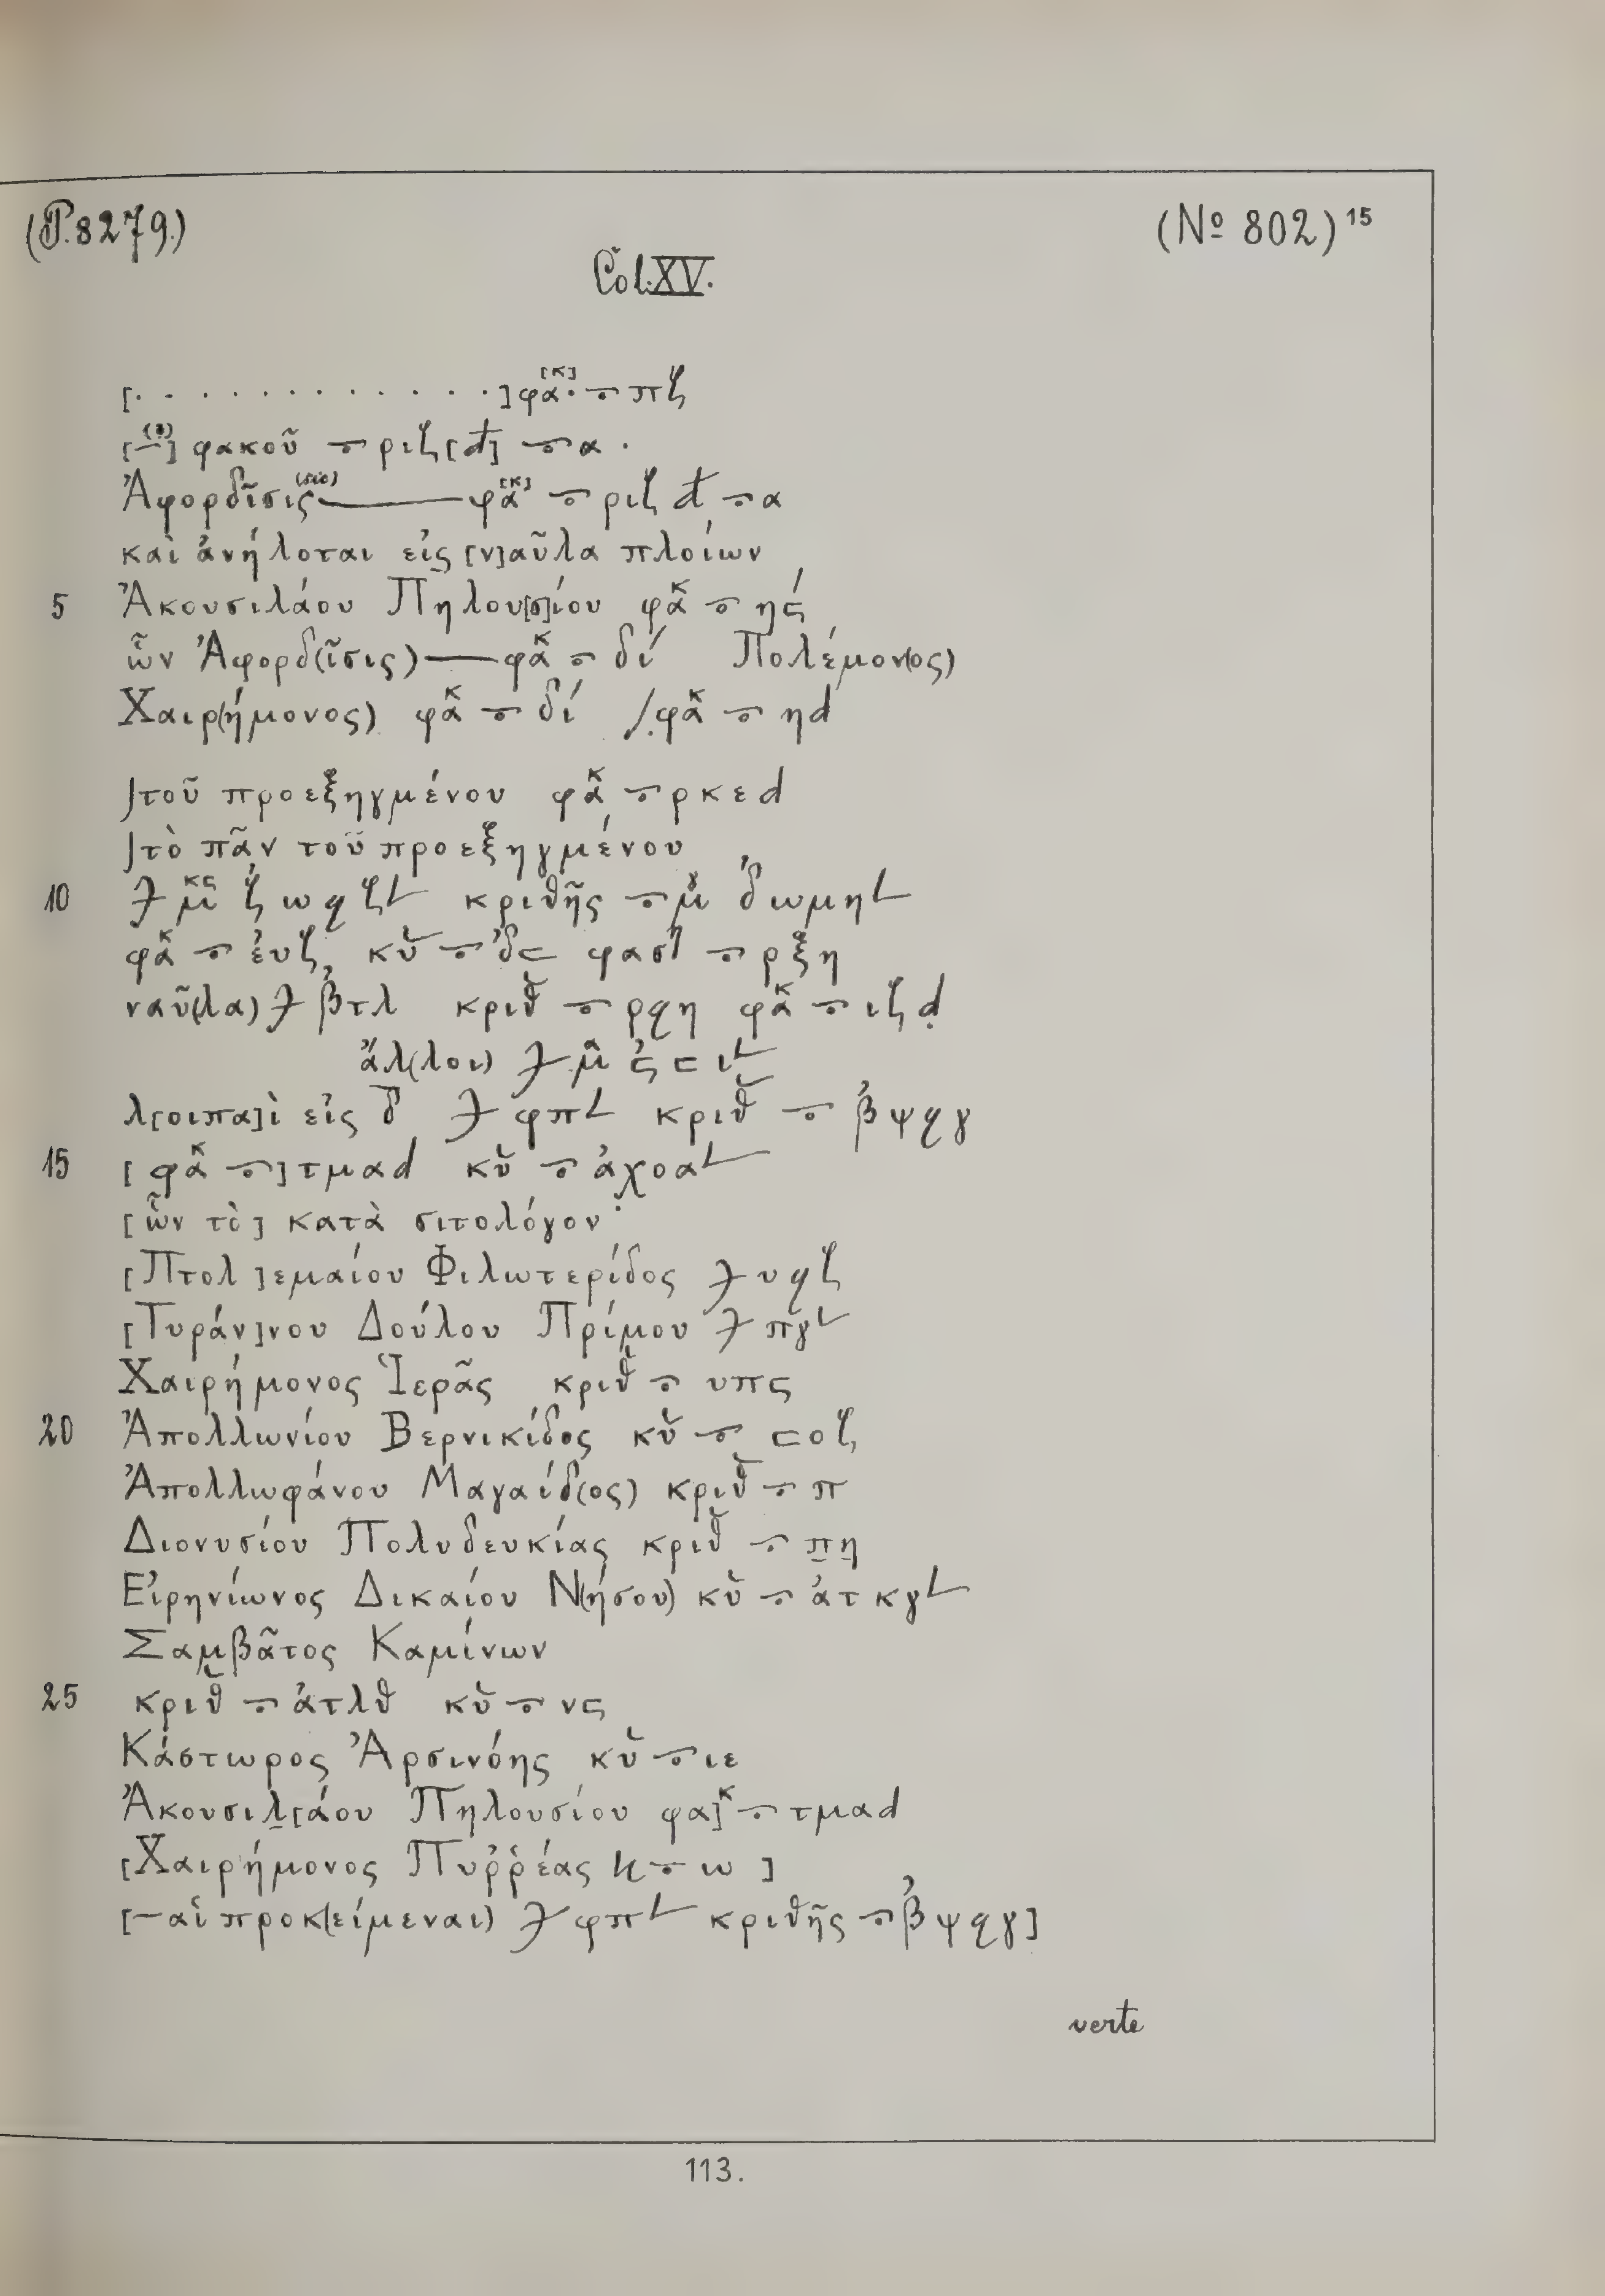 (P. 8279.)
(No 802)15
Col. XV.
[· · · · · · · · · · · ·]φα[κ]· ⲻ πζ
[—(?)] φακοῦ ⲻ ριζ[đ] ⲻ α ·
Ἀφορδῖσις(sic)——— φα[κ] ⲻ ριζ đ ⲻ α
καὶ ἀνήλοται εἰς [ν]αῦλα πλοίων
5 Ἀκουσιλάου Πηλου[σ]ίου φακ ⲻ ηϛ́
ὧν Ἀφορδ(ῖσις)——φακ ⲻ δί Πολέμον(ος)
Χαιρ(ήμονος) φακ ⲻ δί /.φακ ⲻ ηd
∫τοῦ προεξηγμένου φακ ⲻ ρκεd
∫τὸ πᾶν τοῦ προεξηγμένου
10 𐅷 μκϛ ζ́ωϙζ𐅵 κριθῆς ⲻ μγ δ́ωμη𐅵
φακ ⲻ ἐυζ, κύ ⲻ ͵δϲ φασ ⲻ ρξη
ναῦ(λα) 𐅷 β́τλ κριθ ⲻ ρϙη φακ ⲻ ιζ d
ἄλ(λοι) 𐅷 μα ϛ́ϲι𐅵
λ[οιπα]ὶ εἰς δ̅ 𐅷 φπ𐅵 κριθ ⲻ β́ψϙγ
15 [φακ ⲻ]τμαd κύ ⲻ ἀχοα𐅵
[ὧν τὸ] κατὰ σιτολόγον·
[Πτολ]εμαίου Φιλωτερίδος 𐅷 υϙζ
[Τυράν]νου Δούλου Πρίμου 𐅷 πγ𐅵
Χαιρήμονος Ἱερᾶς κριθ ⲻ υπϛ
20 Ἀπολλωνίου Βερνικίδος κύ ⲻ ϲοζ
Ἀπολλωφάνου Μαγαίδ(ος) κριθ ⲻ π
Διονυσίου Πολυδευκίας κριθ ⲻ π̣η̣
Εἰρηνίωνος Δικαίου Ν(ήσου) κύ ⲻ ἀτκγ𐅵
Σαμβᾶτος Καμίνων
25 κριθ ⲻ ἀτλθ κύ ⲻ νϛ
Κάστωρος Ἀρσινόης κύ ⲻ ιε
Ἀκουσιλ̣[άου Πηλουσίου φα]κ ⲻ τμαd
[Χαιρήμονος Πυῤῥέας κ ⲻ ω ]
[—αἱ προκ(είμεναι) 𐅷 φπ𐅵 κριθῆς ⲻ β́ψϙγ]
verte
113.